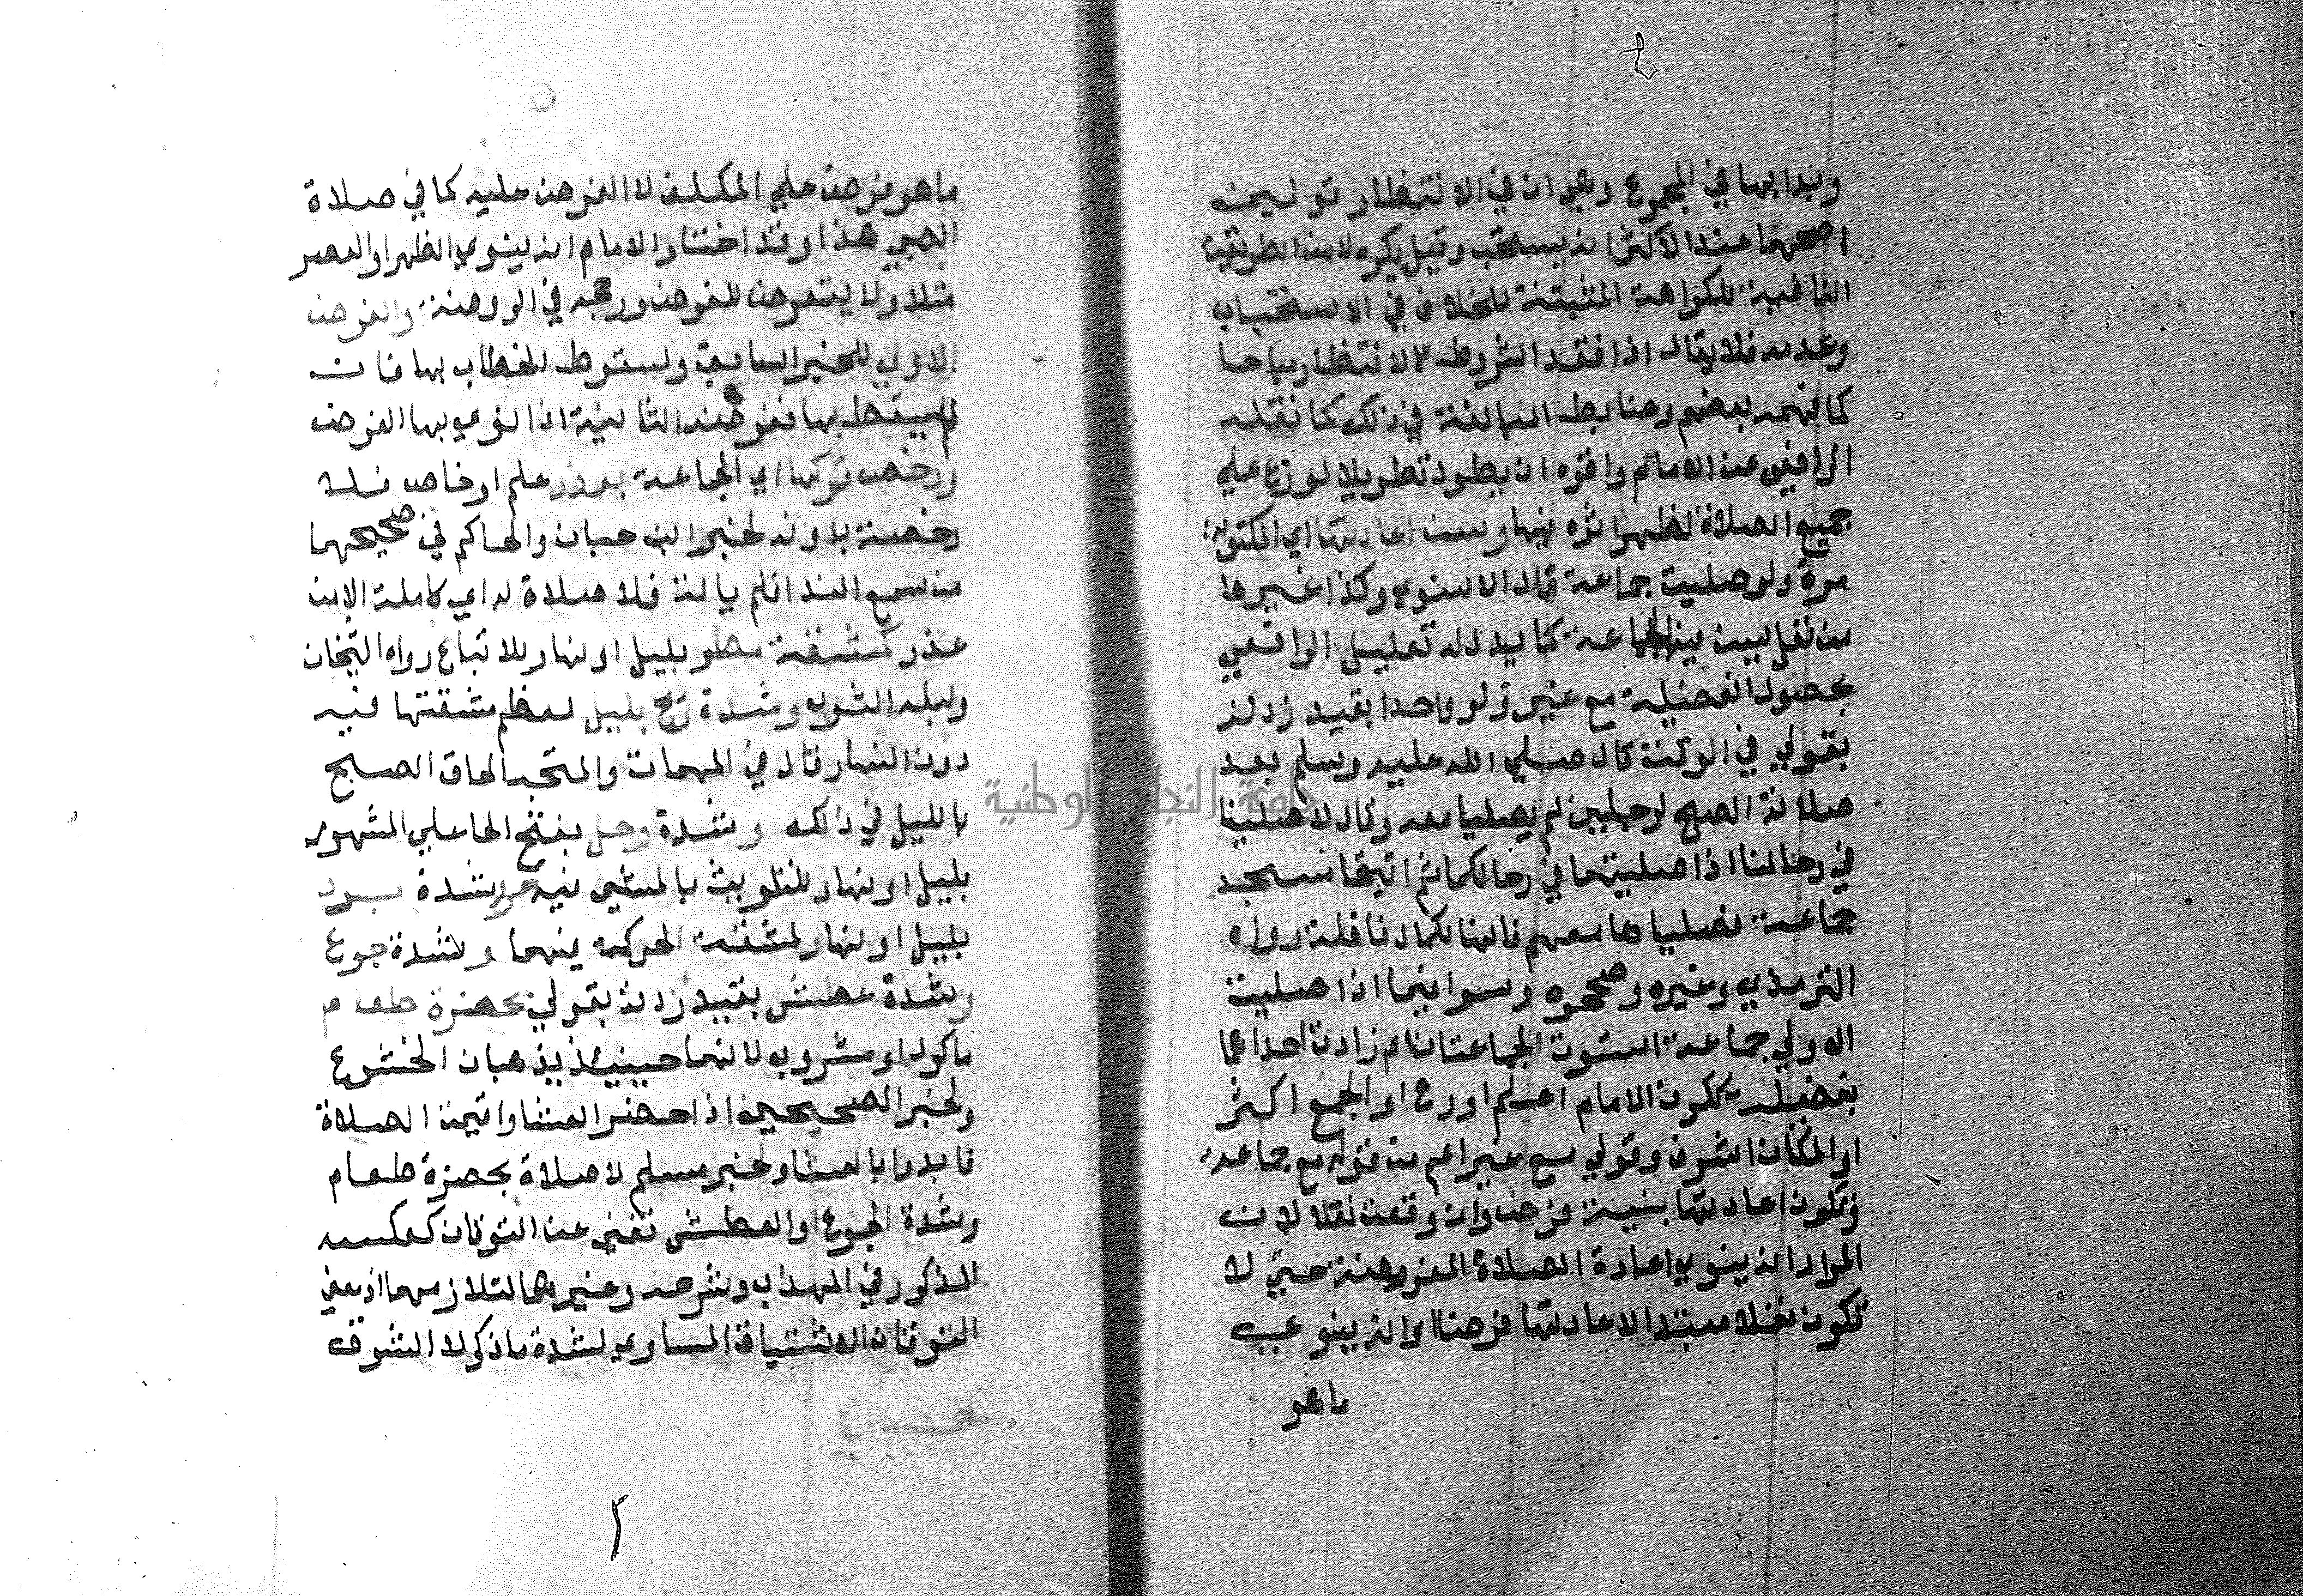 ٤
وبدا بها في المجموع وهي ان في الانتظار قولين
اصحهما عند الاكثر انه يستحب وقيل يكره لا من الطريقة
النافية للكراهة المثبتة للخلاف في الاستحباب
وعدمه فلا يقال اذا فقد الشروط كان الانتظار مباحا
كما فهمه بعضهم وضابط المبالغة في ذلك كما نقله
الرافعي عن الامام واقره ان يطول تطويلا لو وزع علي
جميع الصلاة لظهر اثره فيها وسن اعادتها اي المكتوبة
مرة ولو صليت جماعة قال الاسنوي وكذا غيرها
من نفل يسن فيه الجماعة كما يدل له تعليل الرافعي
بحصول الفضيلة مع غير ولو واحدا بقيد زدته
بقولي في الوقت قال صلي الله عليه وسلم بعد
صلاته الصبح لرجلين لم يصليا معه وقالا صلينا
في رحالنا اذا صليتما في رحالكما ثم اتيتما مسجد
جماعة فصلياها معهم فانها لكما نافلة رواه
الترمذي وغيره وصححوه وسوا فيما اذا صليت
الاولي جماعة استوت الجماعتان ام زادت احداهما
بفضيلة ككون الامام اعلم او اورع او الجمع اكثر
او المكان اشرف وقولي مع غير اعم من قوله مع جماعة
وتكون اعادتها بنية فرض وان وقعت نفلا لان
المراد انه ينوي اعادة الصلاة المفروضة حتي لا
تكون نفلا مبتدا لا اعادتها فرضا او انه ينوي
ما هو
ما هو فرض علي المكلف لا الفرض عليه كما في صلاة
الصبي هذا وقد اختار الامام انه ينوي الظهر او العصر
مثلا ولا يتعرض للفرض ورجحه في الروضة والفرض
الاولي للخبر السابق ولسقوط الخطاب بها فان
لم يسقط بها ففرضه الثانية اذا نوي بها الفرض
ورخص تركها اي الجماعة بعذر عام او خاص فلا
رخصة بدونه لخبر ابن حبان والحاكم في صحيحهما
من سمع الندا فلم ياته فلا صلاة له اي كاملة الا من
عذر كمشقة مطر بليل او نهار للاتباع رواه الشيخان
وبله الثوب وشدة ريح بليل لعظم مشقتها فيه
دون النهار قال في المهمات والمتجه الحاق الصبح
بالليل في ذلك وشدة وحل بفتح الحا علي المشهور
بليل او نهار للتلويث بالمشي فيه وشدة برد
بليل او نهار لمشقة الحركة فيهما وشدة جوع
وشدة عطش بقيد زدته بقولي بحضرة طعام
ماكول او مشروب لانهما حينئذ يذهبان الخشوع
ولخبر الصحيحين اذا حضر العشا واقيمت الصلاة
فابدوا بالعشا ولخبر مسلم لا صلاة بحضرة طعام
وشدة الجوع او العطش تغني عن التوقان كعكسه
المذكور في المهذب وشرحه وغيرهما لتلازمهما اذ معني
التوقان الاشتياق المساوي لشدة ما ذكر لا الشوق
٢
جامعة النجاح الوطنية